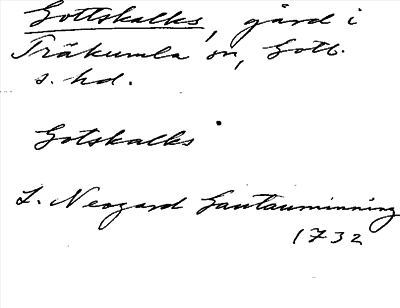 Gottskalks, gård i
Träkumla sn, Gotl.
s. hd.
Gotskalks
L. Neogard Gautauminning
1732